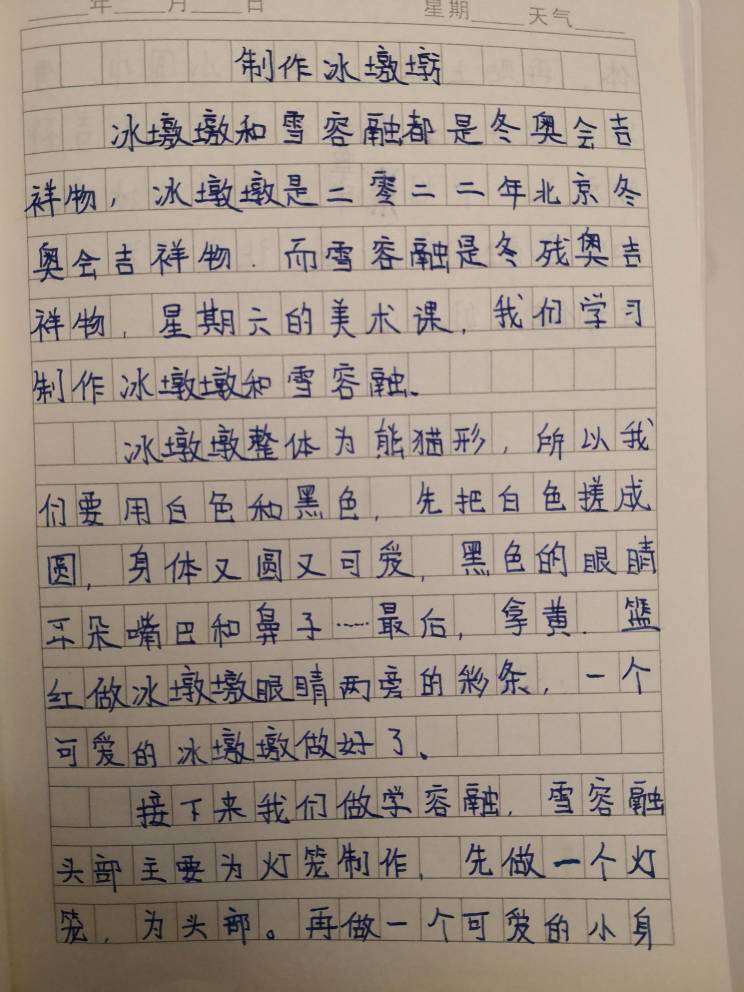 年 月 日 星期 天气
制作冰墩墩
冰墩墩和雪容融都是冬奥会吉
祥物，冰墩墩是二零二二年北京冬
奥会吉祥物．而雪容融是冬残奥吉
祥物，星期六的美术课，我们学习
制作冰墩墩和雪容融、
冰墩墩整体为熊猫形，所以我
们要用白色和黑色，先把白色搓成
圆，身体又圆又可爱，黑色的眼睛
耳朵嘴巴和鼻子……最后，拿黄．篮
红做冰墩墩眼睛两旁的彩条，一个
可爱的冰墩墩做好了、
接下来我们做学容融，雪容融
头部主要为灯笼制作，先做一个灯
笼，为头部。再做一个可爱的小身